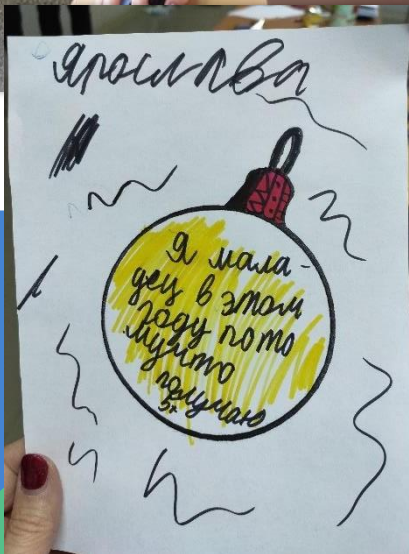 Ярослава
Я мала-
дец в этом
году пото
муито
получаю
5+